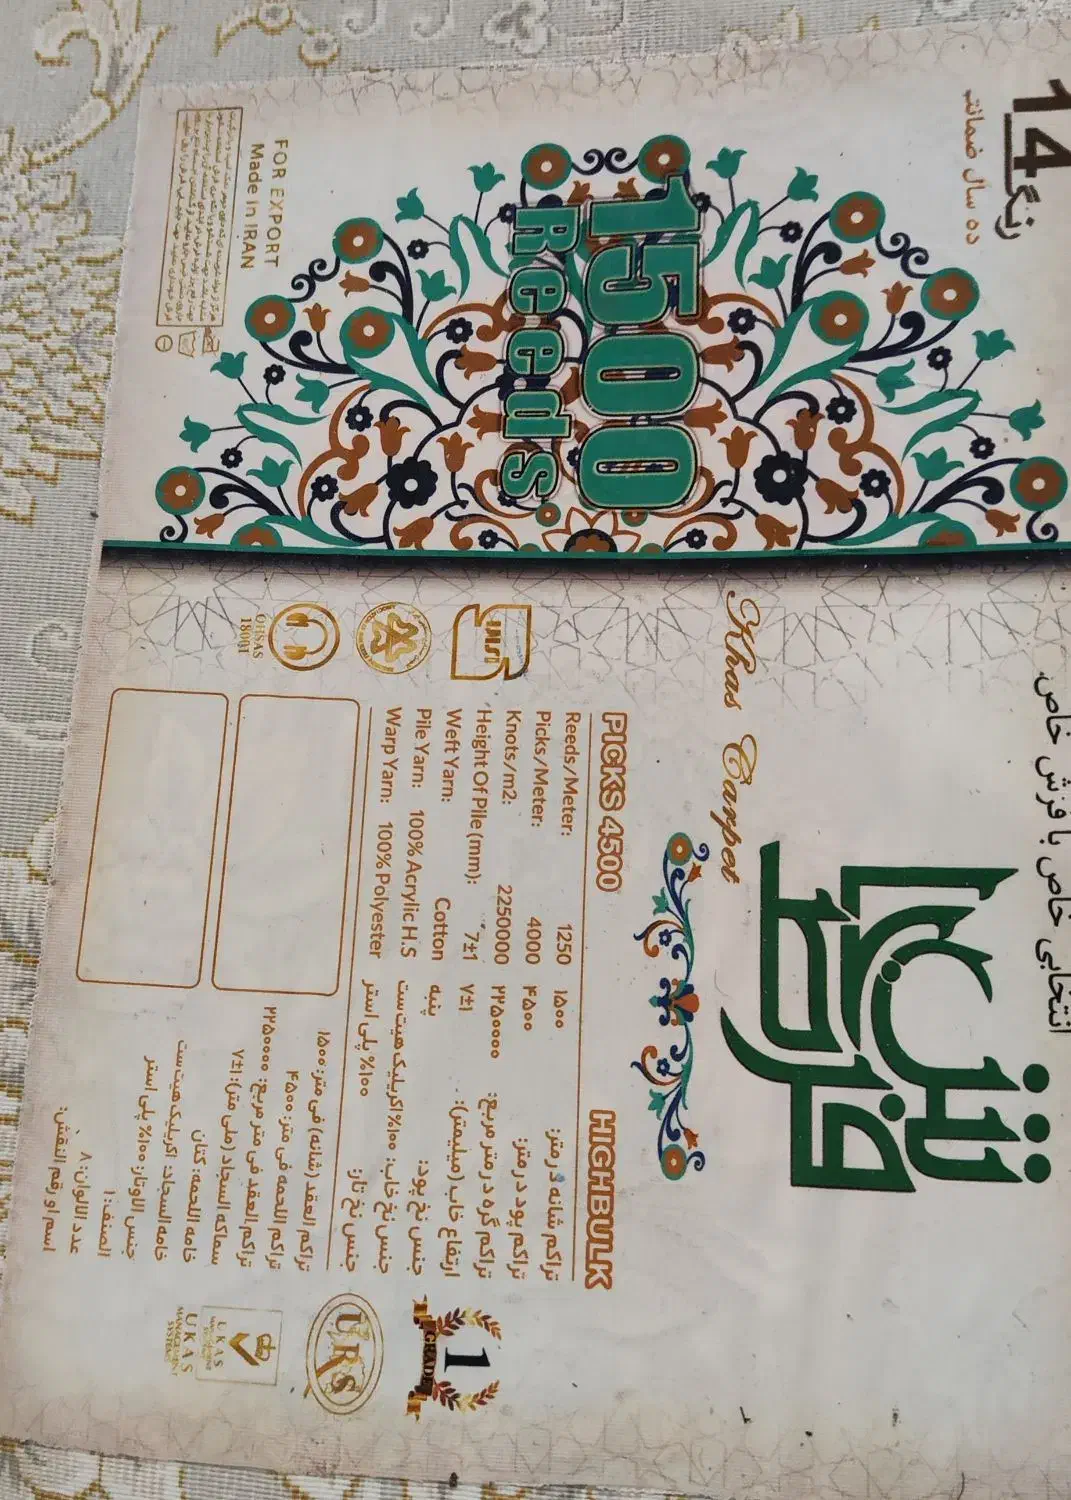 14
رنگ
ده سال ضمانت
1500
Reeds
FOR EXPORT
Made in IRAN
انتخابی خاص با فرش خاص
Khas Carpet
PICKS 4500
HIGHBULK
Reeds/Meter: 1250 ۱۵۰۰ تراکم شانه در متر:
Picks/Meter: 4000 ۴۵۰۰ تراکم پود در متر:
Knots/m2: 2250000 ۲۲۵۰۰۰۰ تراکم گره در متر مربع:
Height Of Pile (mm): 7±1 ۷±۱ ارتفاع خاب (میلیمتر):
Weft Yarn: Cotton پنبه جنس نخ پود:
Pile Yarn: 100% Acrylic H.S ۱۰۰% اکریلیک هیت ست جنس نخ خاب:
Warp Yarn: 100% Polyester ۱۰۰% پلی استر جنس نخ تار:
تراکم العقد (شانه) فی متر: ۱۵۰۰
تراکم اللحمه فی متر: ۴۵۰۰
تراکم العقد فی متر مربع: ۲۲۵۰۰۰۰
سماکه السجاد (ملی متر): ۷±۱
خامه اللحمه: کتان
خامه السجاد: اکریلیک هیت ست
جنس الاوتار: ۱۰۰% پلی استر
الصنف: ۱
عدد الالوان: ۸
اسم او رقم النقش:
OHSAS
18001
1
GRADE
URS
UKAS
MANAGEMENT
SYSTEMS
UKAS
MANAGEMENT
SYSTEMS